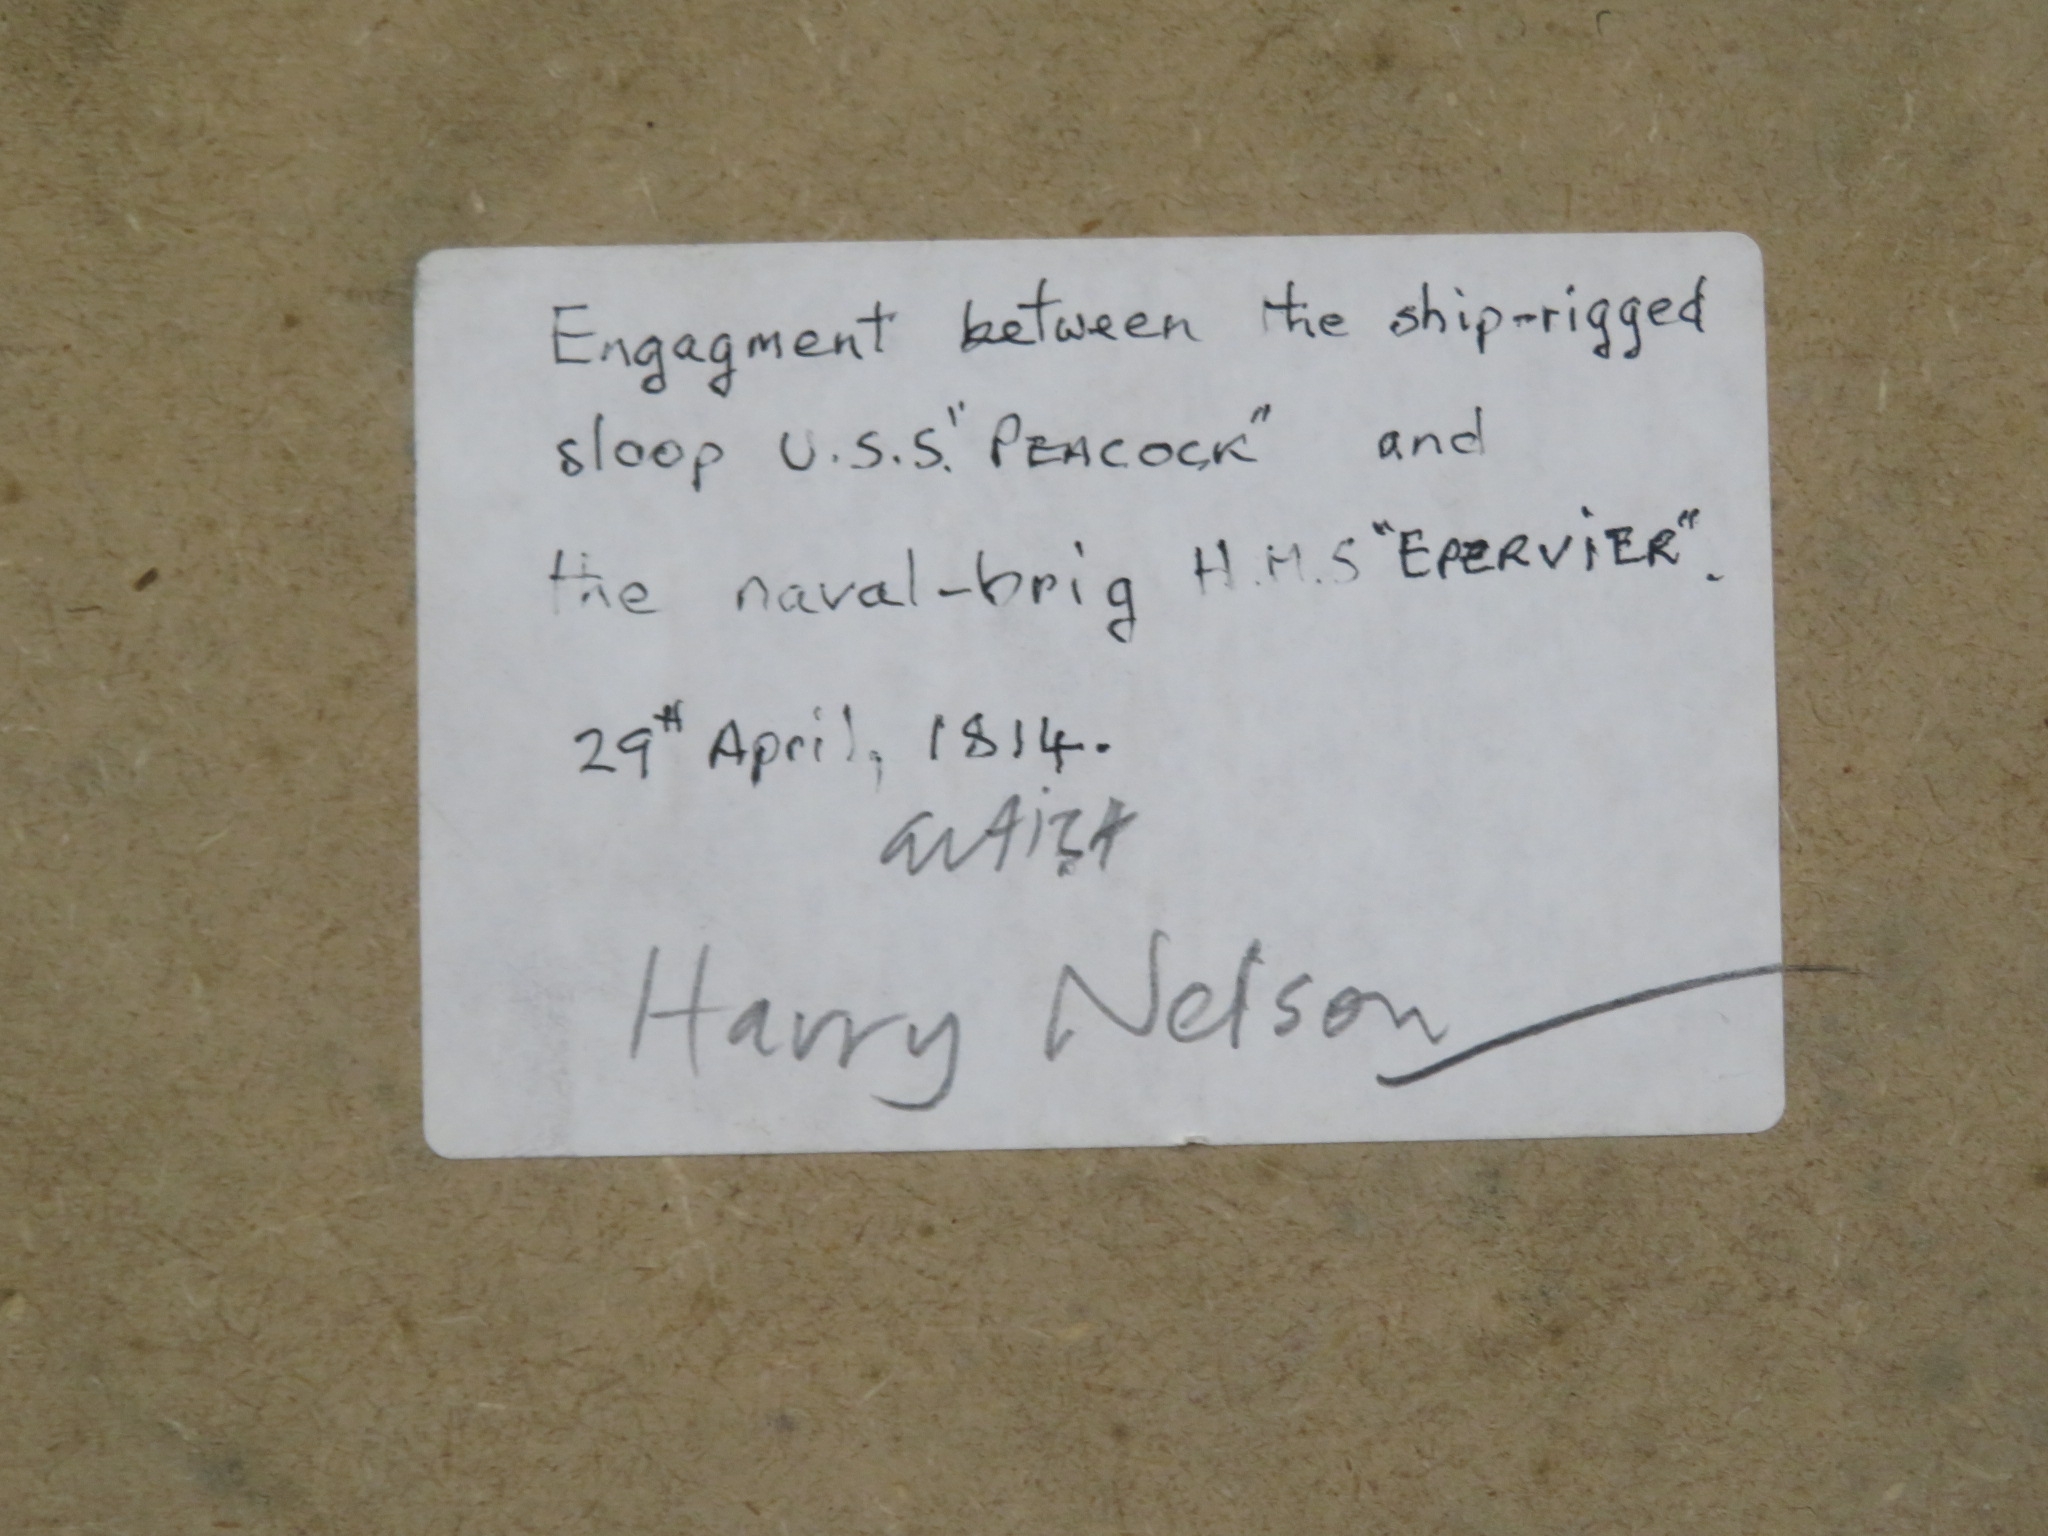 Engagment between the ship-rigged
sloop U.S.S. "PEACOCK" and
the naval-brig H.M.S "EPERViER".
29th April, 1814.
artist
Harry Nelson